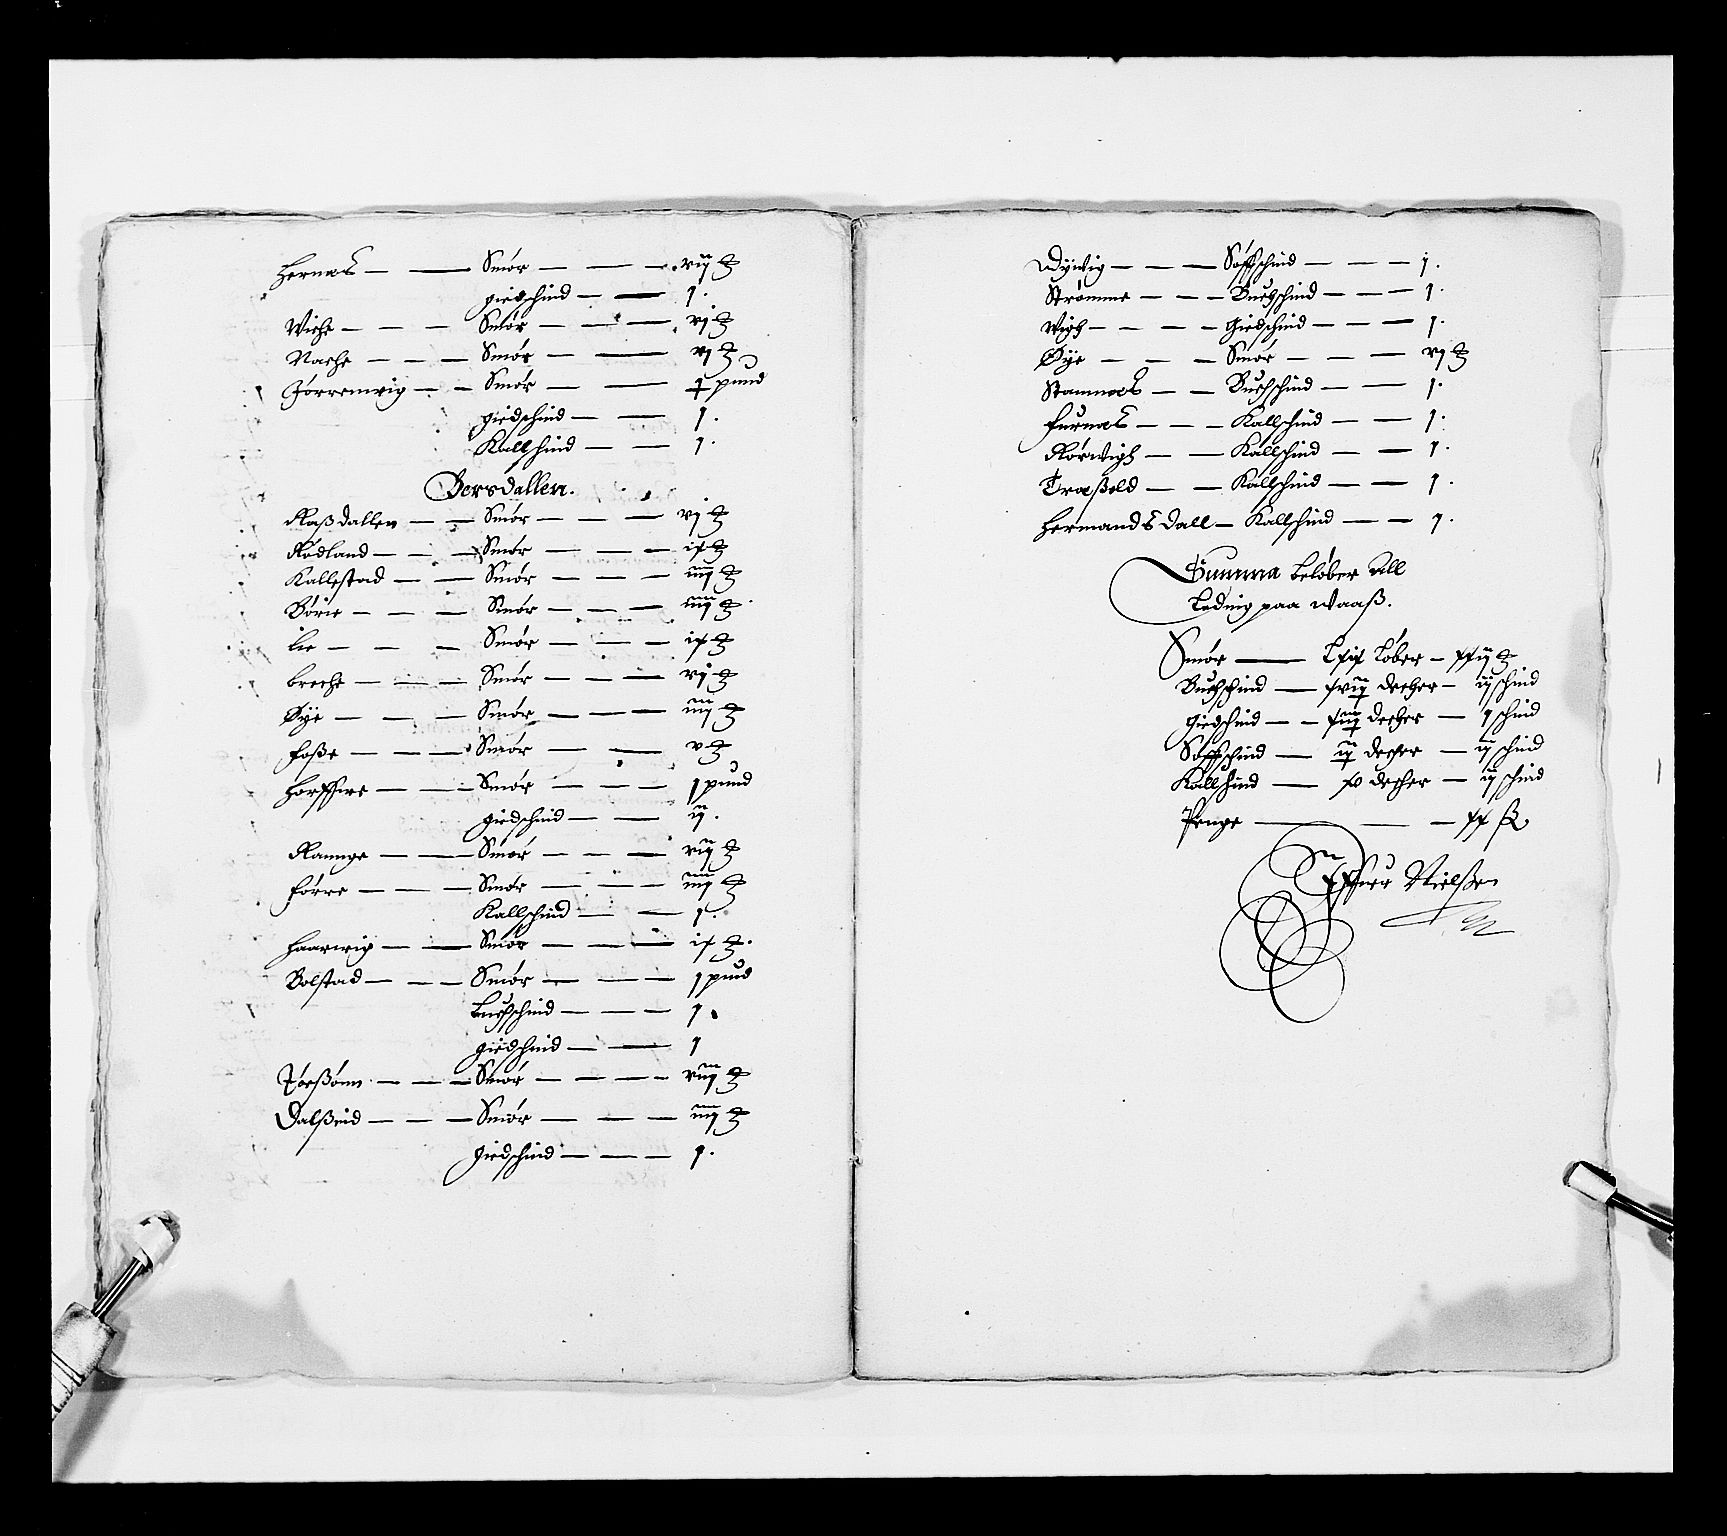 Hernæs — Smør — viij ℔
giedschind — 1.
Wiche — Smør — vj ℔
Nache — Smør — vj ℔
Jørrenwig — Smør — 1 pund
giedschind — 1.
Kallschind — 1.
Bersdallen.
Raßdallen — Smør — vj ℔
Rødland — Smør — ix ℔
Kallestad — Smør — iiij ℔
Børie — Smør — iiij ℔
lie — Smør — ix ℔
breche — Smør — vj ℔
Øye — Smør — iiij ℔
Foße — Smør — v ℔
Horffwe — Smør — 1 pund
giedschind — ij.
Rannge — Smør — viij ℔
Førre — Smør — iiij ℔
Kallschind — 1.
Haarwig — Smør — ix ℔.
Bolstad — Smør — 1 pund
buchschind — 1.
giedschind — 1
Smør — viij ℔
Dalßeid — Smør — iiij ℔
giedschind — 1.
Dywig — Søffschind — j.
Strømme — Buchschind — 1.
Wigh — Giedschind — 1.
Øye — Smør — vj ℔
Stamnæs — Buchschind — 1.
Furnæs — Kallschind — 1.
Rørwigh — Kallschind — 1.
Træßeld — Kallschind — 1.
Hermandsdall — Kallschind — 1.
Summa beløber All
Leding paa Waaß.
Smør — Løber — xxij ℔
Buchschind — decher — iij schind
giedschind — decher — 1 schind
Søffschind — decher — ij schind
Kallschind — xv decher — ij schind
Penge — xx ß
Nielßen